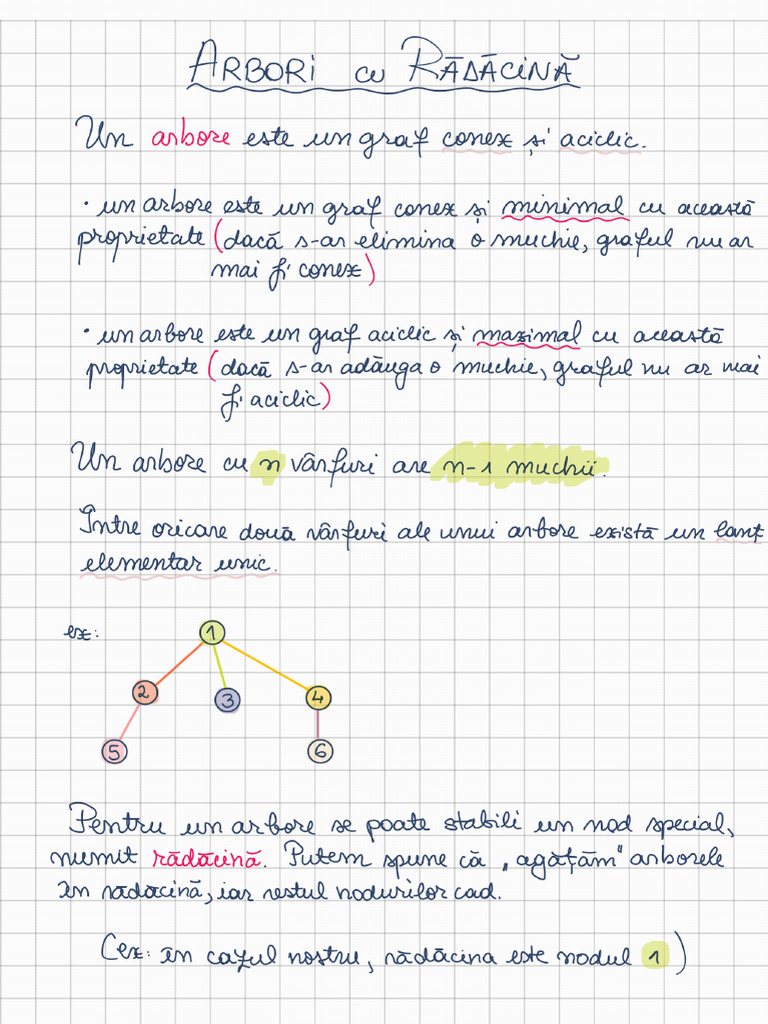 ARBORI cu RĂDĂCINĂ
Un arbore este un graf conex și aciclic.
• un arbore este un graf conex și minimal cu această
proprietate (dacă s-ar elimina o muchie, graful nu ar
mai fi conex)
• un arbore este un graf aciclic și maximal cu această
proprietate (dacă s-ar adăuga o muchie, graful nu ar mai
fi aciclic)
Un arbore cu n vârfuri are n-1 muchii.
Între oricare două vârfuri ale unui arbore există un lanț
elementar unic.
ex:
1
2 3 4
5 6
Pentru un arbore se poate stabili un nod special,
numit rădăcină. Putem spune că „agățăm" arborele
în rădăcină, iar restul nodurilor cad.
(ex: în cazul nostru, rădăcina este nodul 1)